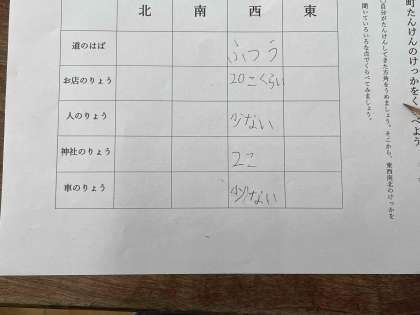 町たんけんのけっかをくらべよう
自分がたんけんしてきた方角をうめましょう。そこから、東西南北のけっかを
聞いていろいろな点でくらべてみましょう。
北 南 西 東
道のはば ふつう
お店のりょう 20こくらい
人のりょう 少ない
神社のりょう 2こ
車のりょう 少ない